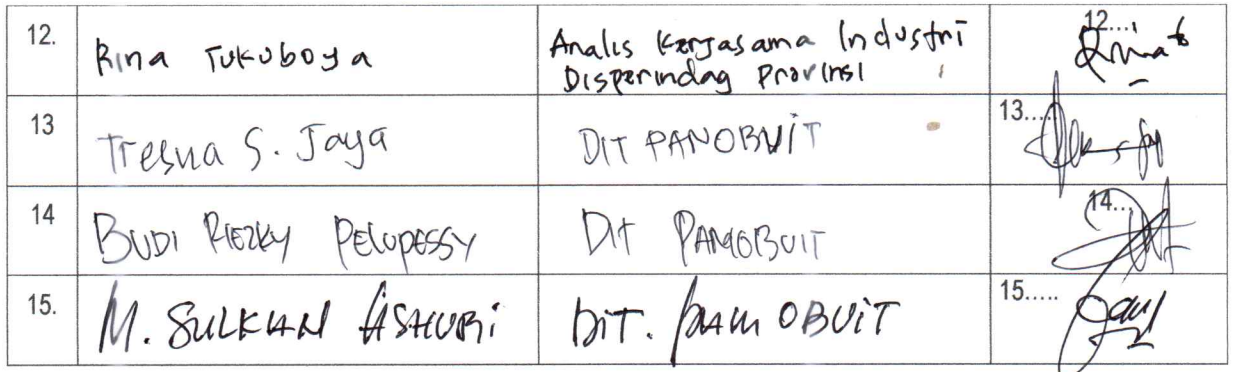 12. Rina Tukuboya Analis Kerjasama Industri 12...
Disperindag Provinsi
13 Tresna S. Jaya DIT PANOBVIT 13....
14 BUDI RIEZKY PELUPESSY DIT PAMOBVIT 14...
15. M. SULKHAN ASHURI DIT. PAM OBVIT 15.....